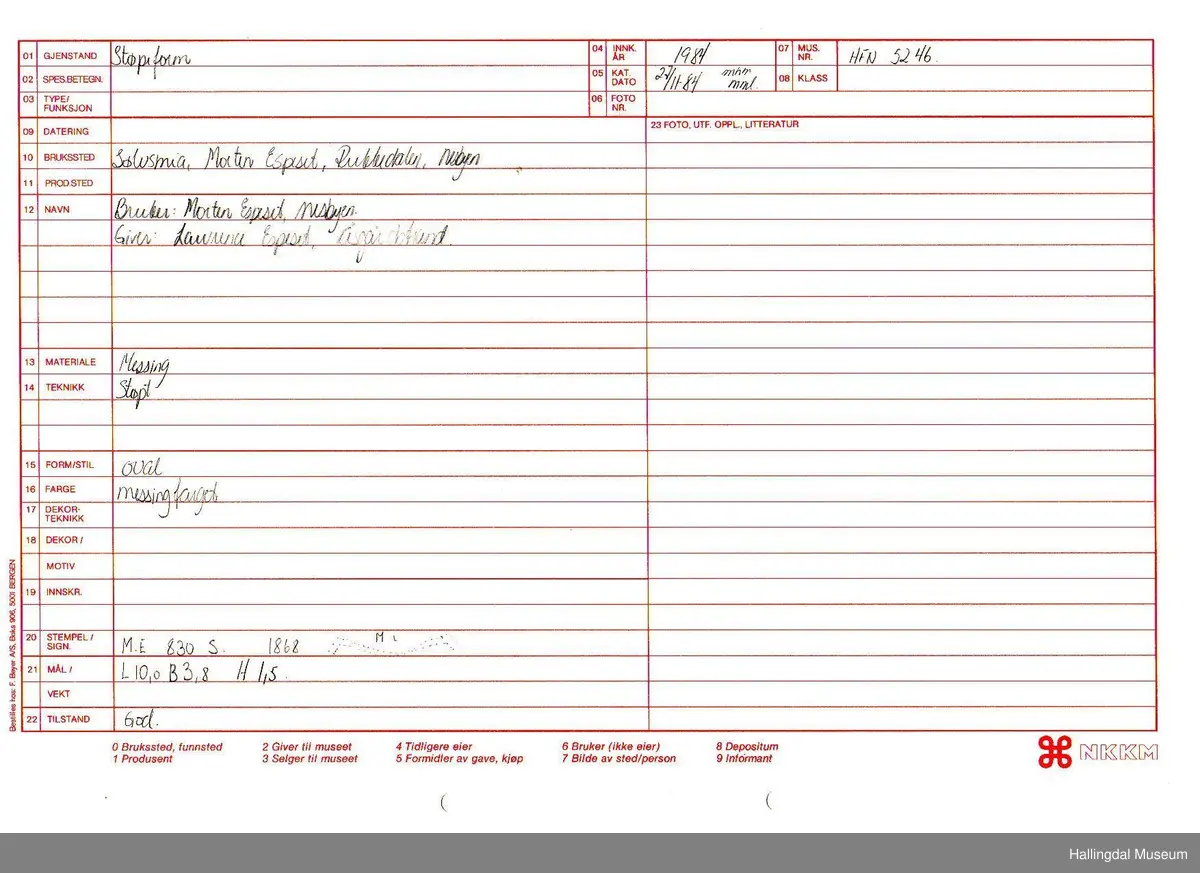 01 GJENSTAND Støpeform 04 INNK. ÅR 1984 07 MUS. NR. HFN 5246
02 SPES.BETEGN. 05 KAT. DATO 27/11-84 08 KLASS
03 TYPE/ FUNKSJON 06 FOTO NR.
09 DATERING 23 FOTO, UTF. OPPL., LITTERATUR
10 BRUKSSTED Sølvsmia, Morten Espeset, Rukkedalen, Nesbyen
11 PROD.STED
12 NAVN Bruker: Morten Espeset, Nesbyen.
Giver: Espeset, Åsgårdstrand.
13 MATERIALE Messing
14 TEKNIKK Støpt
15 FORM/STIL oval
16 FARGE messingfarget
17 DEKOR- TEKNIKK
18 DEKOR /
MOTIV
19 INNSKR.
20 STEMPEL / SIGN. M.E 830 S. 1868
21 MÅL / L 10,0 B 3,8 H 1,5.
VEKT
22 TILSTAND God.
Bestilles hos: F. Beyer A/S, Boks 906, 5001 BERGEN
0 Brukssted, funnsted 2 Giver til museet 4 Tidligere eier 6 Bruker (ikke eier) 8 Depositum
1 Produsent 3 Selger til museet 5 Formidler av gave, kjøp 7 Bilde av sted/person 9 Informant
NKKM
Hallingdal Museum